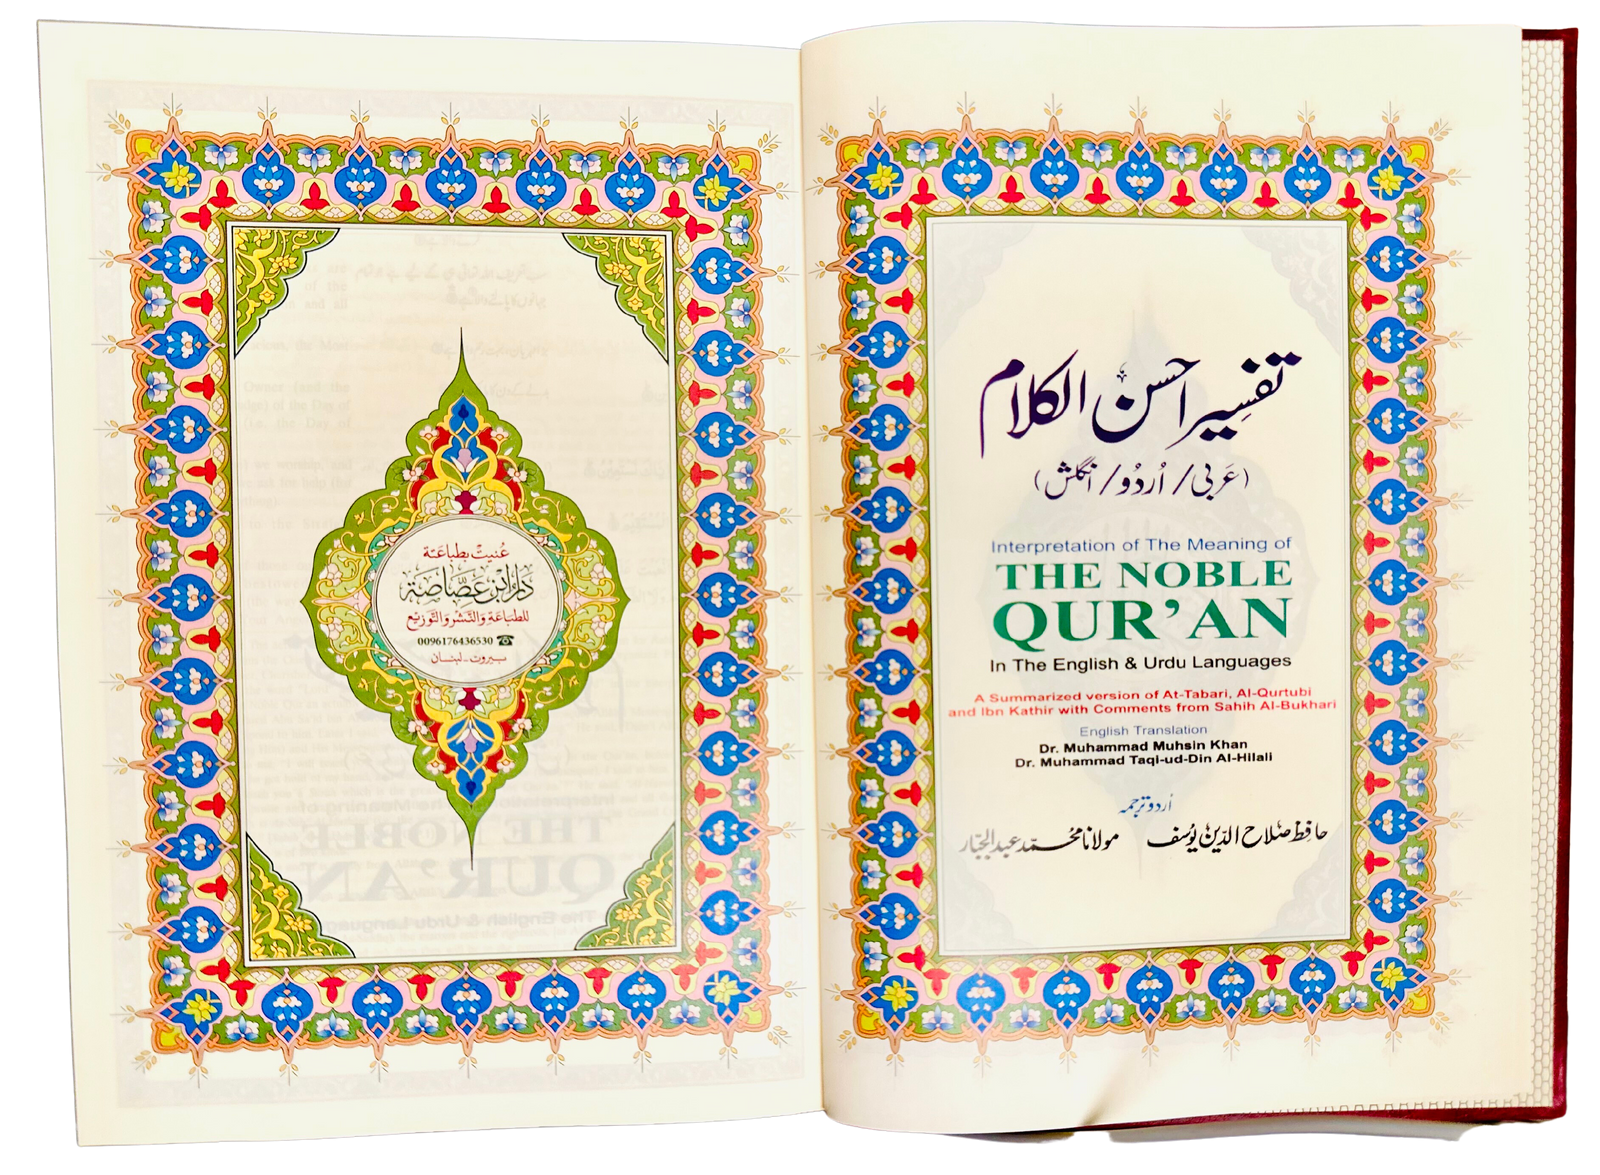 عُنيتْ بطباعَة
دَارُ ابْن عَصَّاصَة
للطبَاعَةِ وَالنَّشْرِ وَالتَّوْزِيْع
0096176436530 ☎
بيروت - لبنان
تفسیر احسن الکلام
(عَرَبی / اُردُو / انگلش)
Interpretation of The Meaning of
THE NOBLE
QUR'AN
In The English & Urdu Languages
A Summarized version of At-Tabari, Al-Qurtubi
and Ibn Kathir with Comments from Sahih Al-Bukhari
English Translation
Dr. Muhammad Muhsin Khan
Dr. Muhammad Taqi-ud-Din Al-Hilali
اُردو ترجمہ
حافِظ صَلاح الدّین یُوسُف مولانا محُمّد عبد الجبّار